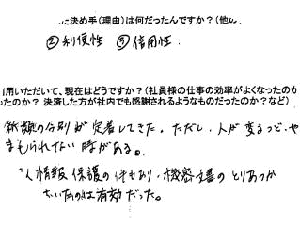 決め手(理由)は何だったんですか?(他の
②利便性 ③信用性.
用いただいて、現在はどうですか?(社員様の仕事の効率がよくなったのか
ったのか? 決済した方が社内でも感謝されるようなものだったのか?など)
紙類の分別が定着してきた。ただし、人が変るつど、や
まもられない時がある。
人情報保護の件もあり、機密文書のとりあつか
は有効だった。